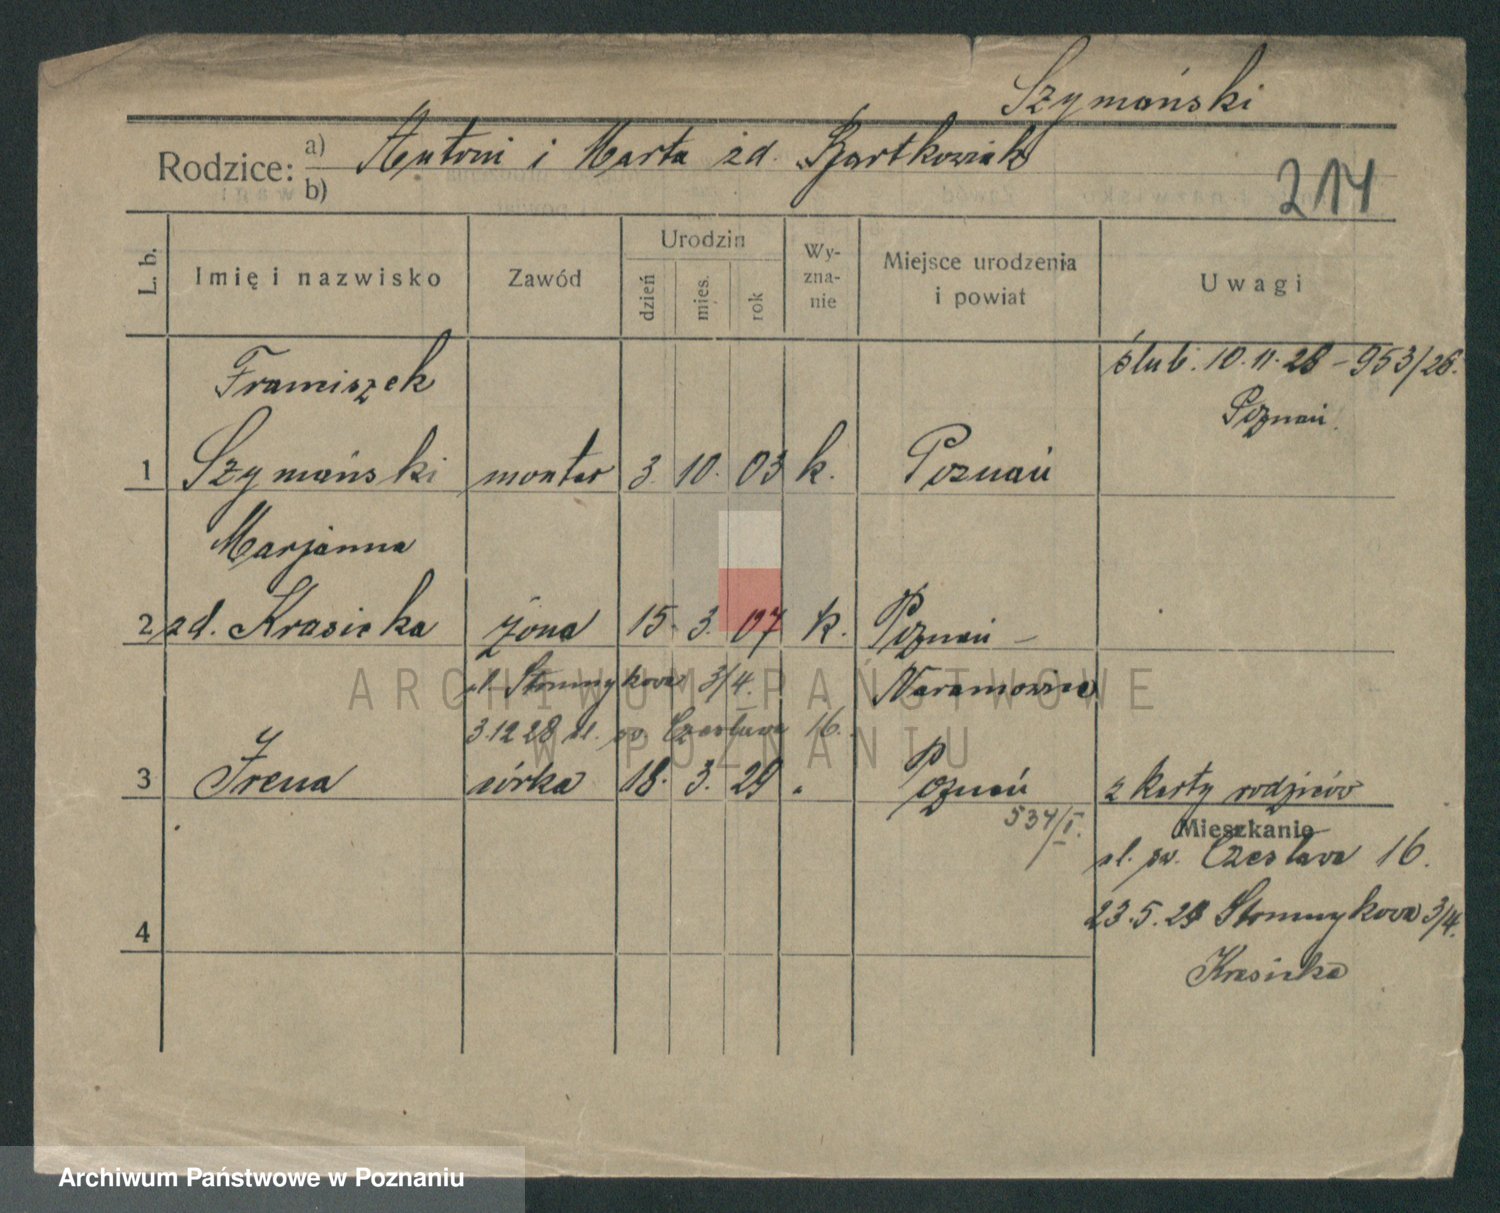 Szymański
Rodzice: a) Antoni i Marta zd. Bartkowiak
b)
214
L. b.
Imię i nazwisko
Zawód
Urodzin
dzień
mies.
rok
Wy-
zna-
nie
Miejsce urodzenia
i powiat
Uwagi
Franciszek
ślub. 10.11.28 – 953/28.
Poznań
1 Szymański monter 3. 10. 03 k. Poznań
Marjanna
2 zd. Krasicka żona 15. 3. 07 k. Poznań –
Naramowice
ul. 3/4.
3.12.28 ul. św. Czesława 16.
3 Irena córka 18. 3. 29 " Poznań
2 karty rodziców
534/I.
Mieszkanie
ul. św. Czesława 16.
23.5.29 3/4.
4
Krasicka
ARCHIWUM PAŃSTWOWE
W POZNANIU
Archiwum Państwowe w Poznaniu